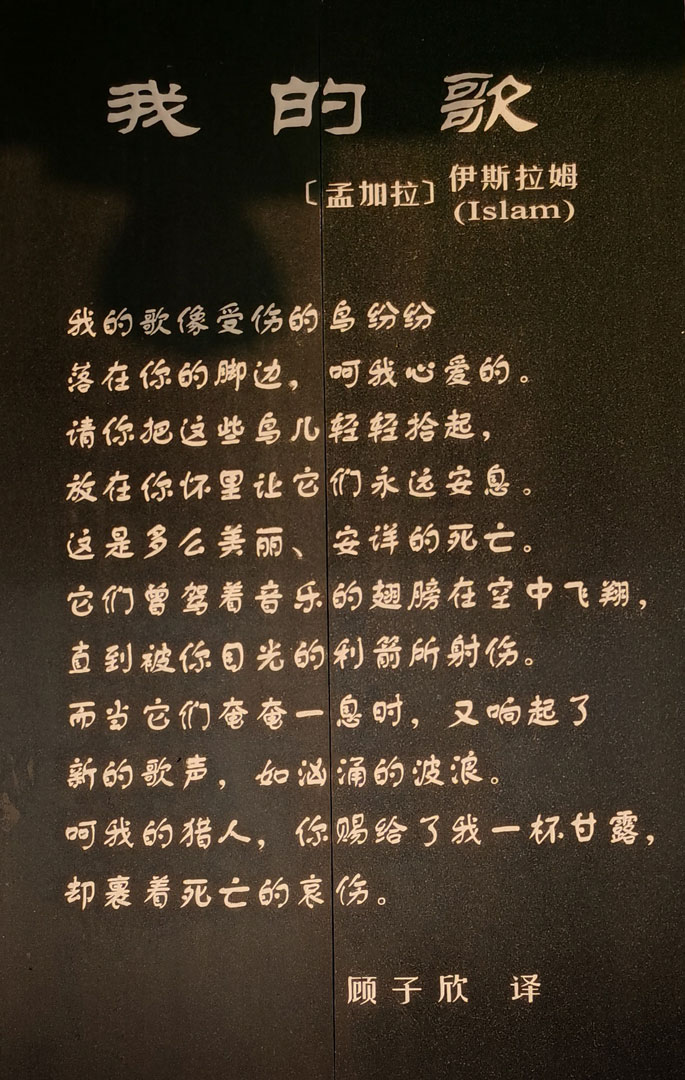 我的歌
〔孟加拉〕伊斯拉姆
(Islam)
我的歌像受伤的鸟纷纷
落在你的脚边，呵我心爱的。
请你把这些鸟儿轻轻拾起，
放在你怀里让它们永远安息。
这是多么美丽、安详的死亡。
它们曾驾着音乐的翅膀在空中飞翔，
直到被你目光的利箭所射伤。
而当它们奄奄一息时，又响起了
新的歌声，如汹涌的波浪。
呵我的猎人，你赐给了我一杯甘露，
却裹着死亡的哀伤。
顾子欣 译